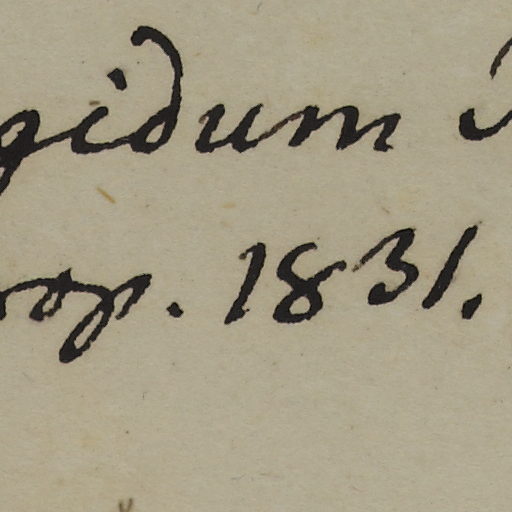 gidum
rop. 1831.